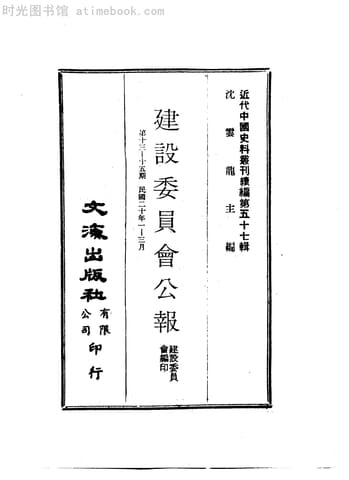 时光图书馆 atimebook.com
近代中國史料叢刊續編第五十七輯
沈雲龍主編
建設委員會公報
建設委員會編印
第十三—十五期 民國二十年一—三月
文海出版社
有限公司
印行